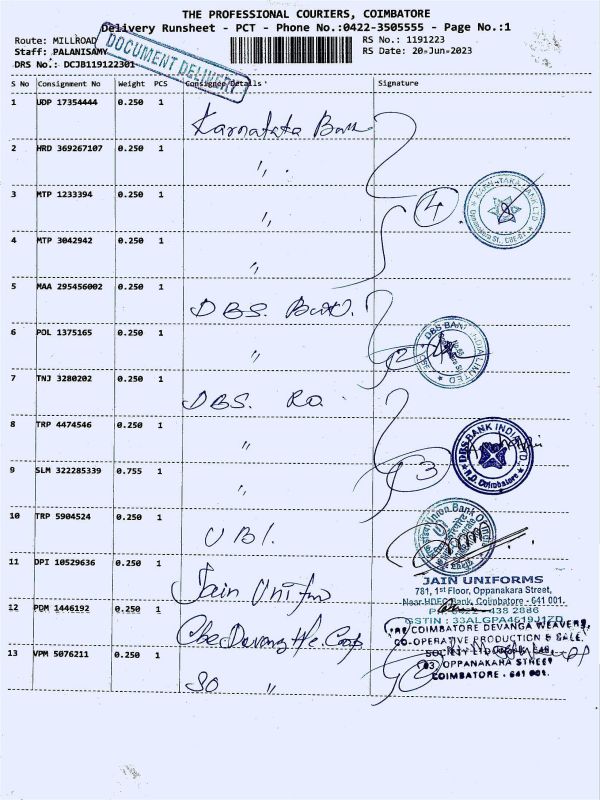 THE PROFESSIONAL COURIERS, COIMBATORE
Delivery Runsheet - PCT - Phone No.:0422-3505555 - Page No.:1
Route: MILLROAD
RS No.: 1191223
Staff: PALANISAMY
RS Date: 20-Jun-2023
DRS No.: DCJB119122301
DOCUMENT DELIVERY
S No Consignment No Weight PCS Consignee Details Signature
1 UDP 17354444 0.250 1 Karnataka Bank
2 HRD 369267107 0.250 1 "
3 MTP 1233394 0.250 1 "
4
KARNATAKA BANK LTD
4 MTP 3042942 0.250 1 "
5 MAA 295456002 0.250 1 DBS. Bank.
6 POL 1375165 0.250 1 "
2
DBS BANK INDIA LIMITED
7 TNJ 3280202 0.250 1 DBS. RO
8 TRP 4474546 0.250 1 "
DBS BANK INDIA LTD.
R.O. Coimbatore
9 SLM 322285339 0.755 1 "
3
10 TRP 5904524 0.250 1 UBI.
Union Bank Of India
11 DPI 10529636 0.250 1 Jain Uniform
JAIN UNIFORMS
781, 1st Floor, Oppanakara Street,
Near HDFC Bank, Coimbatore - 641 001.
438 2886
GSTIN : 33ALGPA4619J1ZD
12 PDM 1446192 0.250 1 Cbe Devang H/c Coop
COIMBATORE DEVANGA WEAVERS,
CO-OPERATIVE PRODUCTION & SALE
SOCIETY LTD
13 VPM 5076211 0.250 1 SO "
2
OPPANAKARA STREET
COIMBATORE - 641 001.